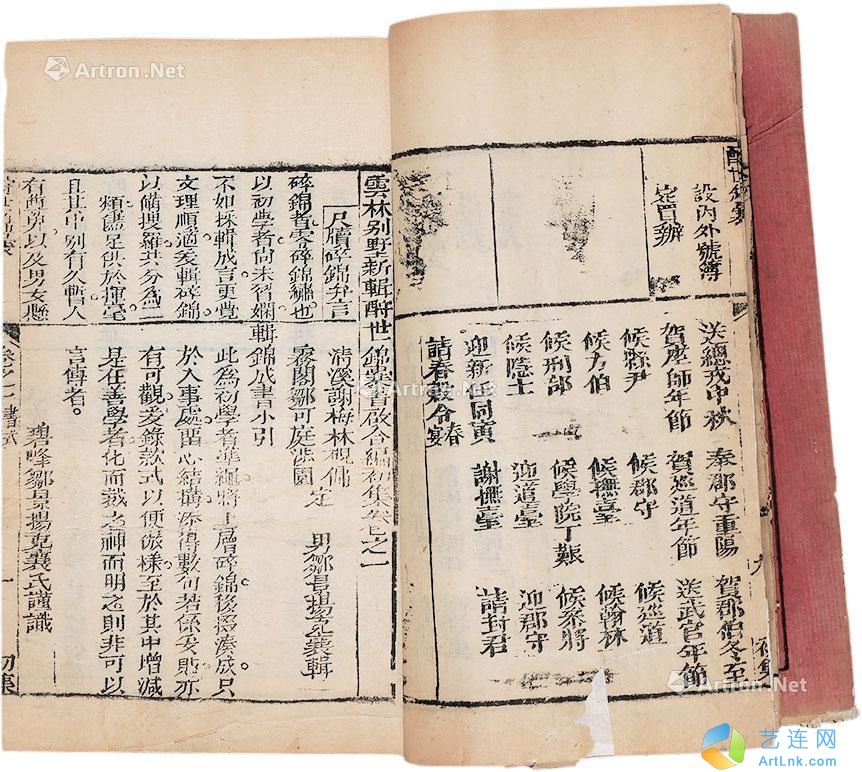 酬世錦囊
設內外號簿
定買辦
送總戎中秋 奏郡守重陽 賀郡伯冬至
賀座師年節 賀巡道年節 送武官年節
候縣尹 候郡守 候巡道
候方伯 候撫臺 候翰林
候刑部 候學院丁艱 候參將
候隱士 迎道臺 迎郡守
迎新任同寅 謝撫臺 請封君
請春殿令春宴
九
初集
雲林別墅新輯酬世錦囊書啟合編初集卷之一
清溪謝梅林硯傭
霧閣鄒可庭涉園 定 男鄒景揚克襄輯
尺牘碎錦弁言
碎錦者零碎錦繡也
以初學者尚未習嫻
不如採輯成言更覺
文理順適爰輯碎錦
以備搜羅其分為二
類儘足供於揮毫
且其中別有久暫人
有尊卑以及男女懸
輯錦成書小引
此為初學者準繩將上層碎錦後掇湊成只
於人事處留心結構添得數句若係妥貼亦
有可觀爰錄款式以便倣樣至於其中增減
是在善學者化而裁之神而明之則非可以
言傳者。
碧峰鄒景揚克襄氏謹識
酬世錦囊
卷之一 書式
一
初集
Artron.Net
Artron.Net
Artron.Net
Artron.Net
艺连网
ArtLnk.com